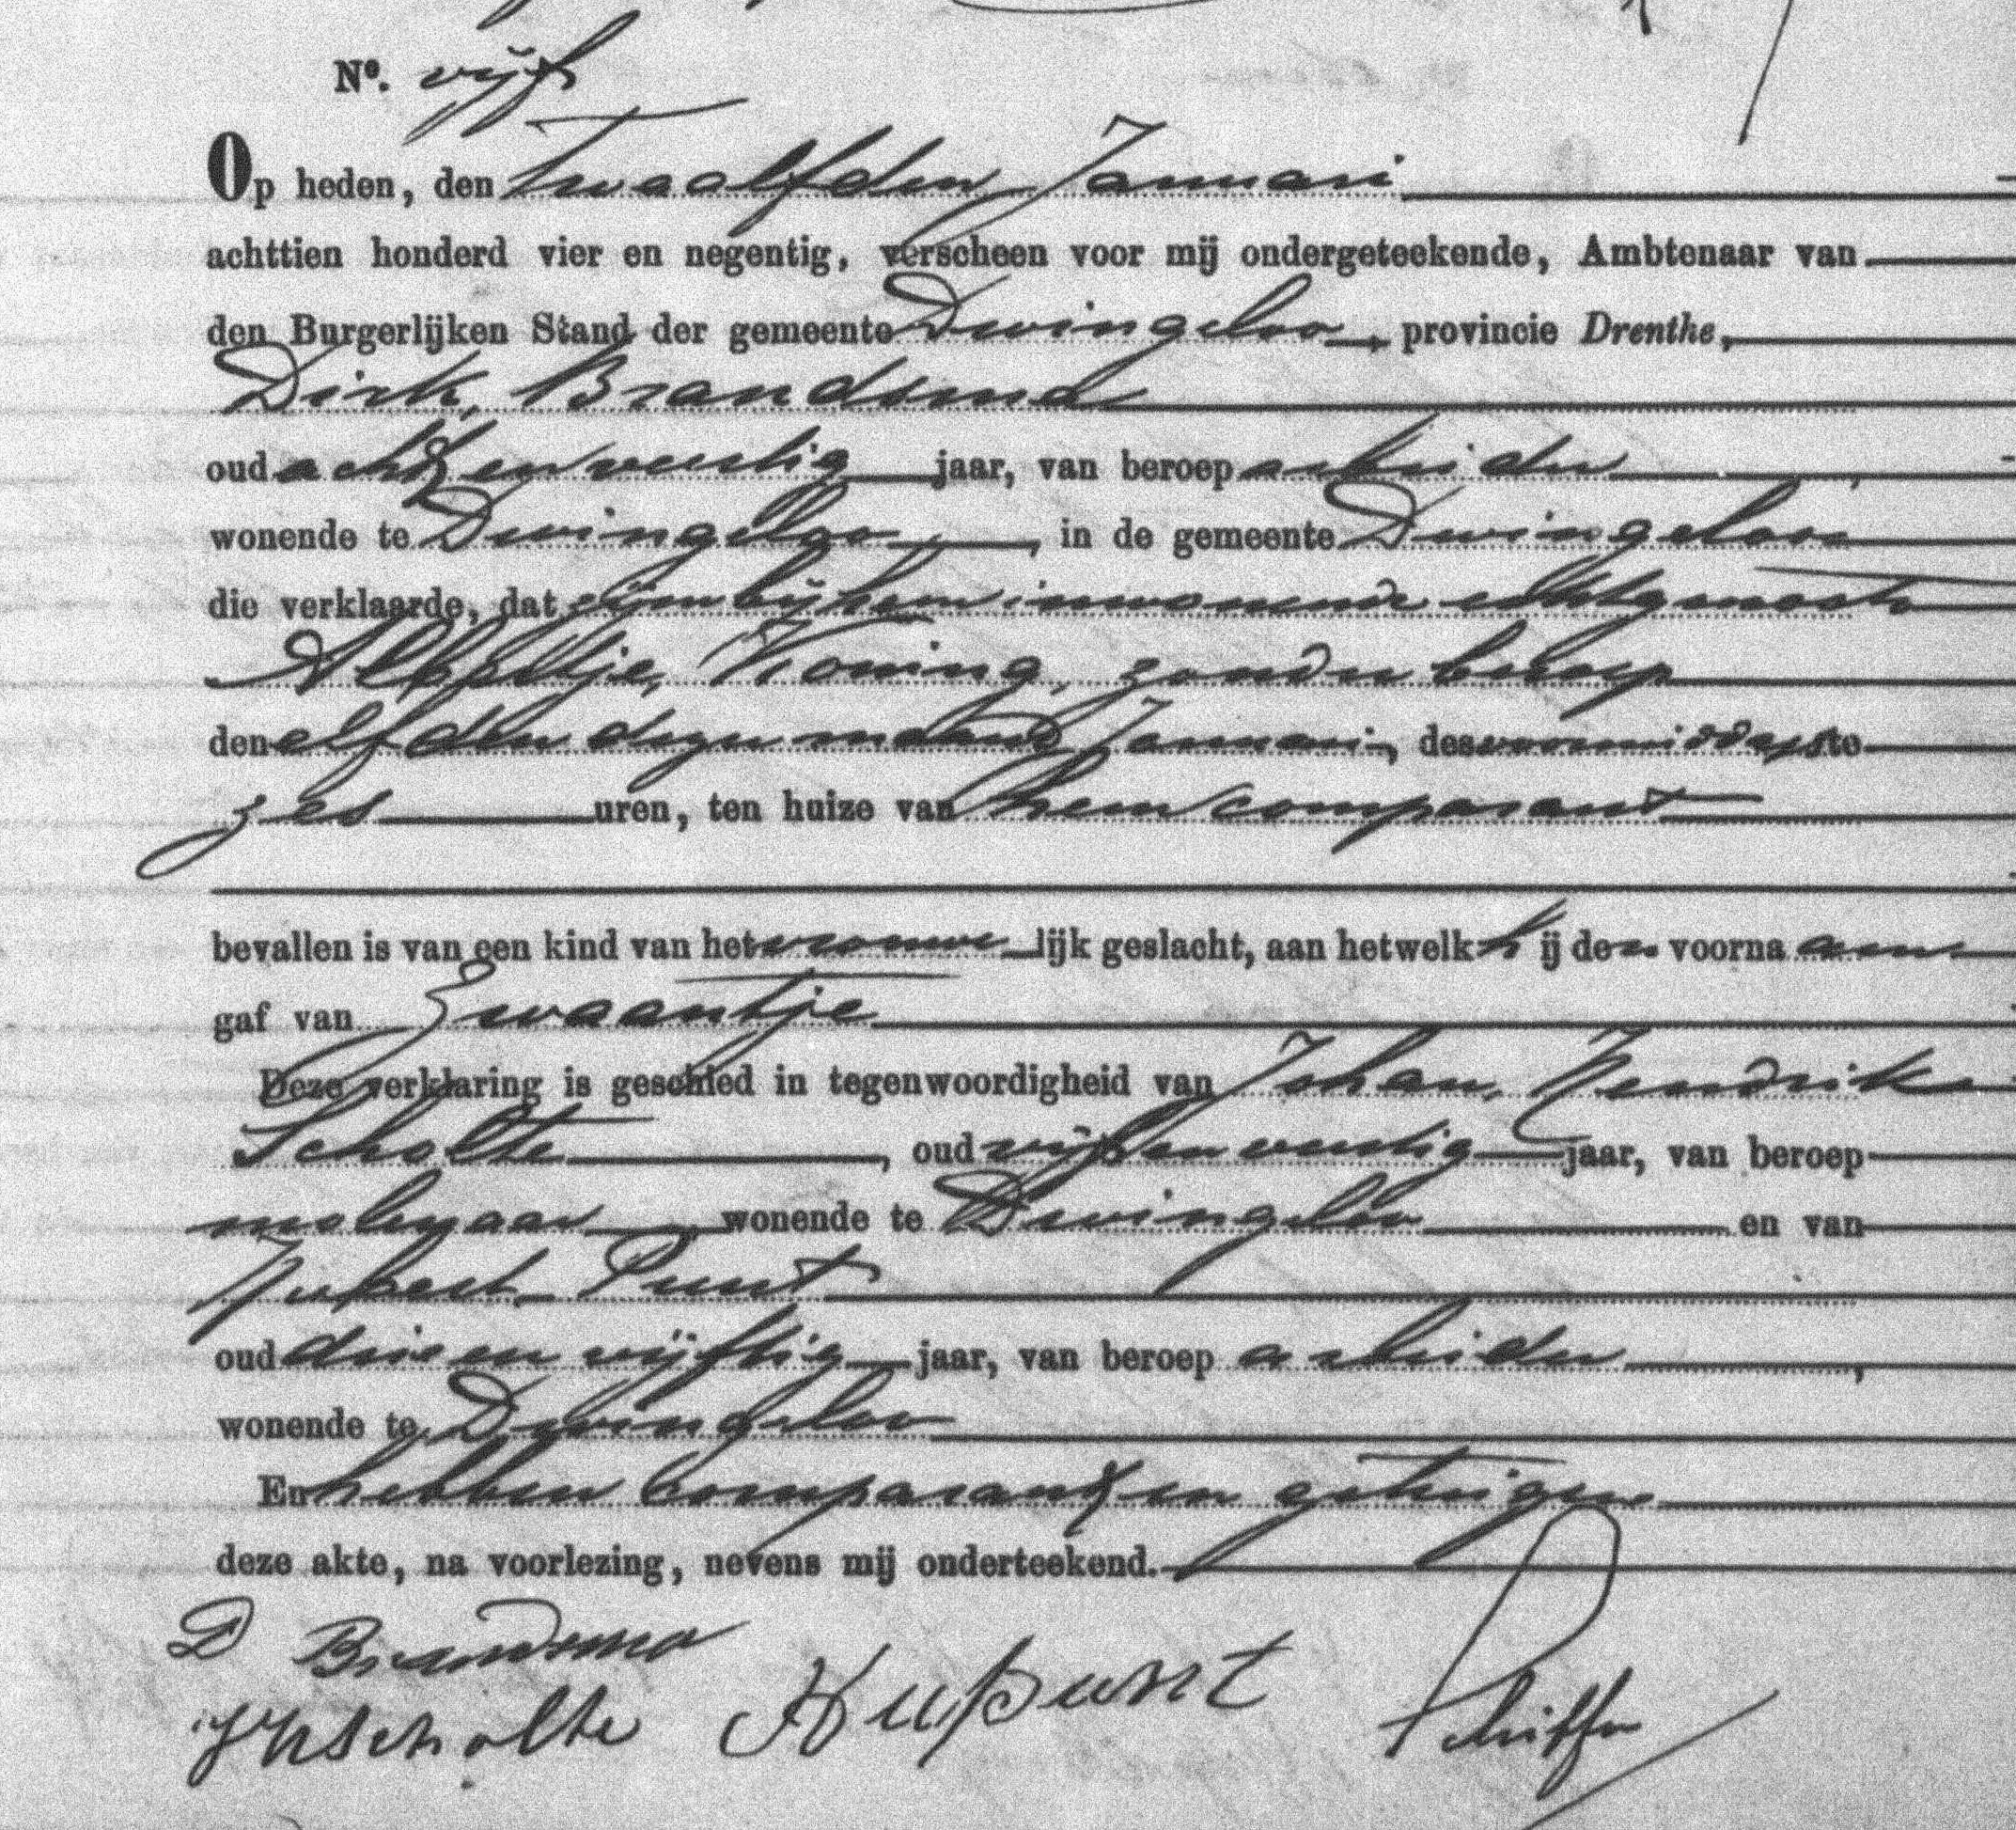 Nº. vijf
Op heden, den Twaalfden Januari
achttien honderd vier en negentig, verscheen voor mij ondergeteekende, Ambtenaar van
den Burgerlijken Stand der gemeente Dwingeloo, provincie Drenthe,
Dirk Brandsma
oud acht en veertig jaar, van beroep arbeider,
wonende te Dwingeloo, in de gemeente Dwingeloo,
die verklaarde, dat zijne bij hem inwonende echtgenoote
Koning, zonder beroep
den elfden dezer maand Januari, des voormiddags te
zes uren, ten huize van hem comparant
bevallen is van een kind van het vrouwelijk geslacht, aan hetwelk hij den voornaam
gaf van Zwaantje
Deze verklaring is geschied in tegenwoordigheid van Johan Hendrik
Scholte, oud vijf en veertig jaar, van beroep
molenaar, wonende te Dwingeloo en van
Hubert Punt
oud drie en vijftig jaar, van beroep arbeider,
wonende te Dwingeloo
En hebben comparant en getuigen
deze akte, na voorlezing, nevens mij onderteekend.
D Brandsma
JHScholte Hu Punt